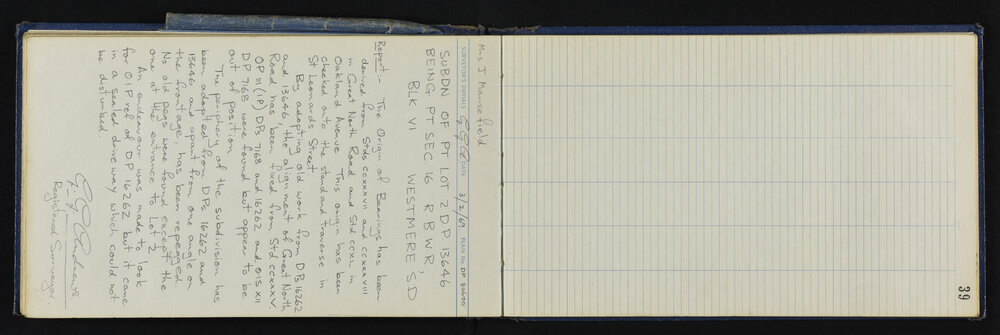 Mrs J Mansefield
SURVEYOR'S INITIALS DATE 3/2/69 PLAN No. DP
SUBDN OF PT LOT 2 DP 13646
BEING PT SEC 16 R B W R,
BLK VI WESTMERE SD
Report:- The Origin of Bearings has been
derived from Stds ccxxxvii and ccxxxviii
in Great North Road and Std ccxl in
Oakland Avenue. This origin has been
checked onto the standard traverse in
St Leonards Street
By adopting old work from DPs 16262
and 13646, the alignment of Great North
Road has been fixed from Std ccxxxv.
OP 11 (1P) DPs 7168 and 16262 and OIS XII
DP 7168 were found but appear to be
out of position
The periphery of the subdivision has
been adopted from DPs 16262 and
13646 and apart from one angle on
the frontage, has been repegged.
No old pegs were found except the
one at the entrance to Lot 2
An endeavour was made to look
for O.I.P ref of DP 16262 but it came
in a sealed driveway which could not
be disturbed.
Registered Surveyor.
39